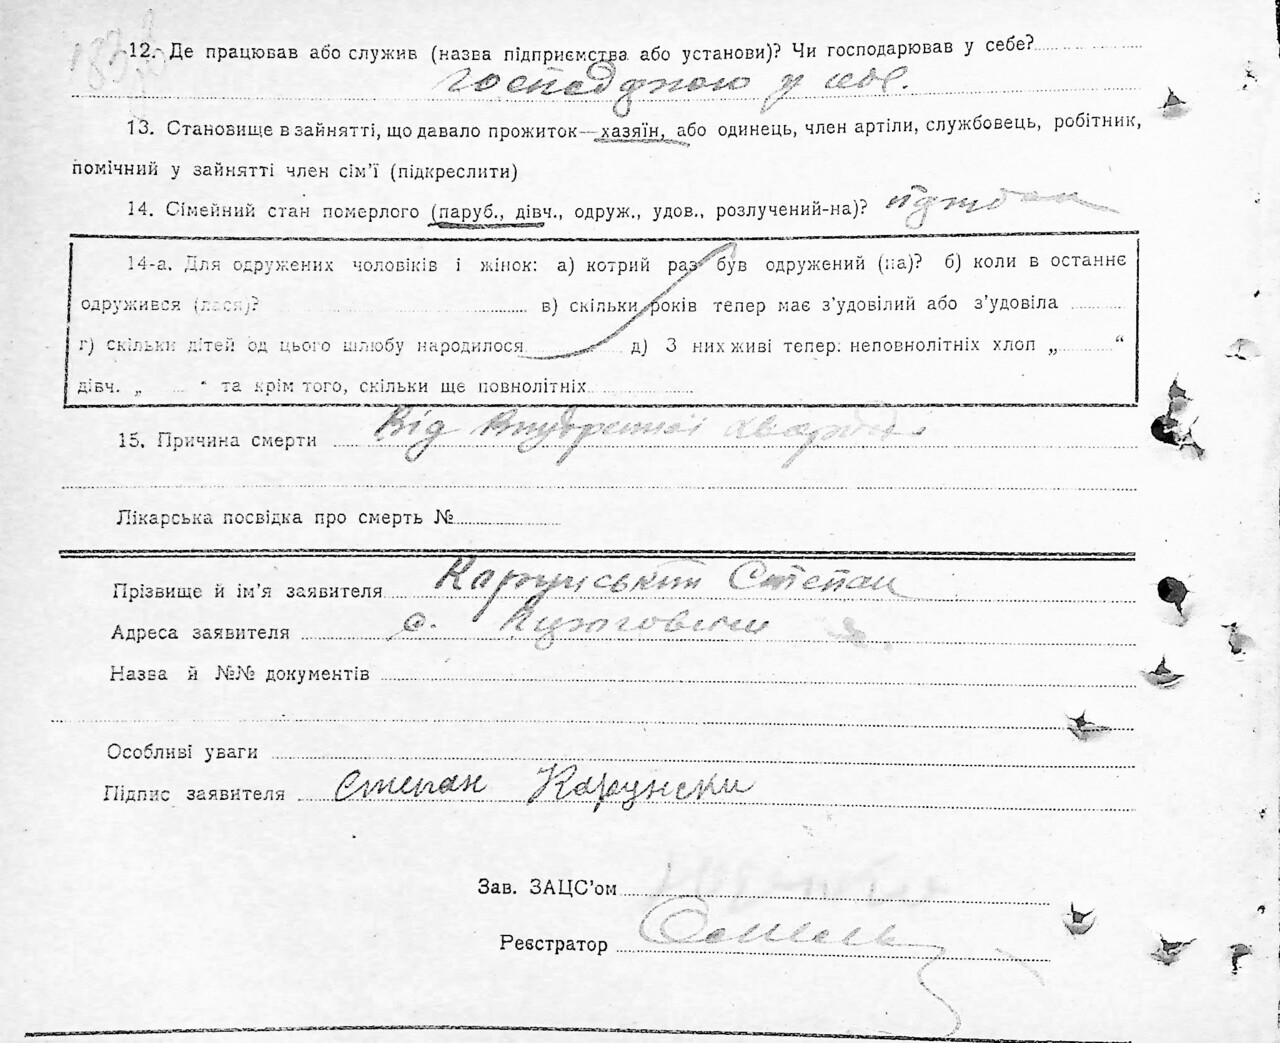 12. Де працював або служив (назва підприємства або установи)? Чи господарював у себе?
господарюю у себе.
13. Становище в зайнятті, що давало прожиток—хазяїн, або одинець, член артіли, службовець, робітник,
помічний у зайнятті член сім’ї (підкреслити)
14. Сімейний стан померлого (паруб., дівч., одруж., удов., розлучений-на)?
14-а. Для одружених чоловіків і жінок: а) котрий раз був одружений (на)? б) коли в останнє
одружився (лася)? в) скільки років тепер має з’удовілий або з’удовіла
г) скільки дітей од цього шлюбу народилося д) З них живі тепер: неповнолітніх хлоп „ “
дівч. „ “ та крім того, скільки ще повнолітніх
15. Причина смерти Від внутренної
Лікарська посвідка про смерть №
Прізвище й ім’я заявителя Степан
Адреса заявителя с.
Назва й №№ документів
Особливі уваги
Підпис заявителя Степан Карунски
Зав. ЗАЦС’ом
Реєстратор